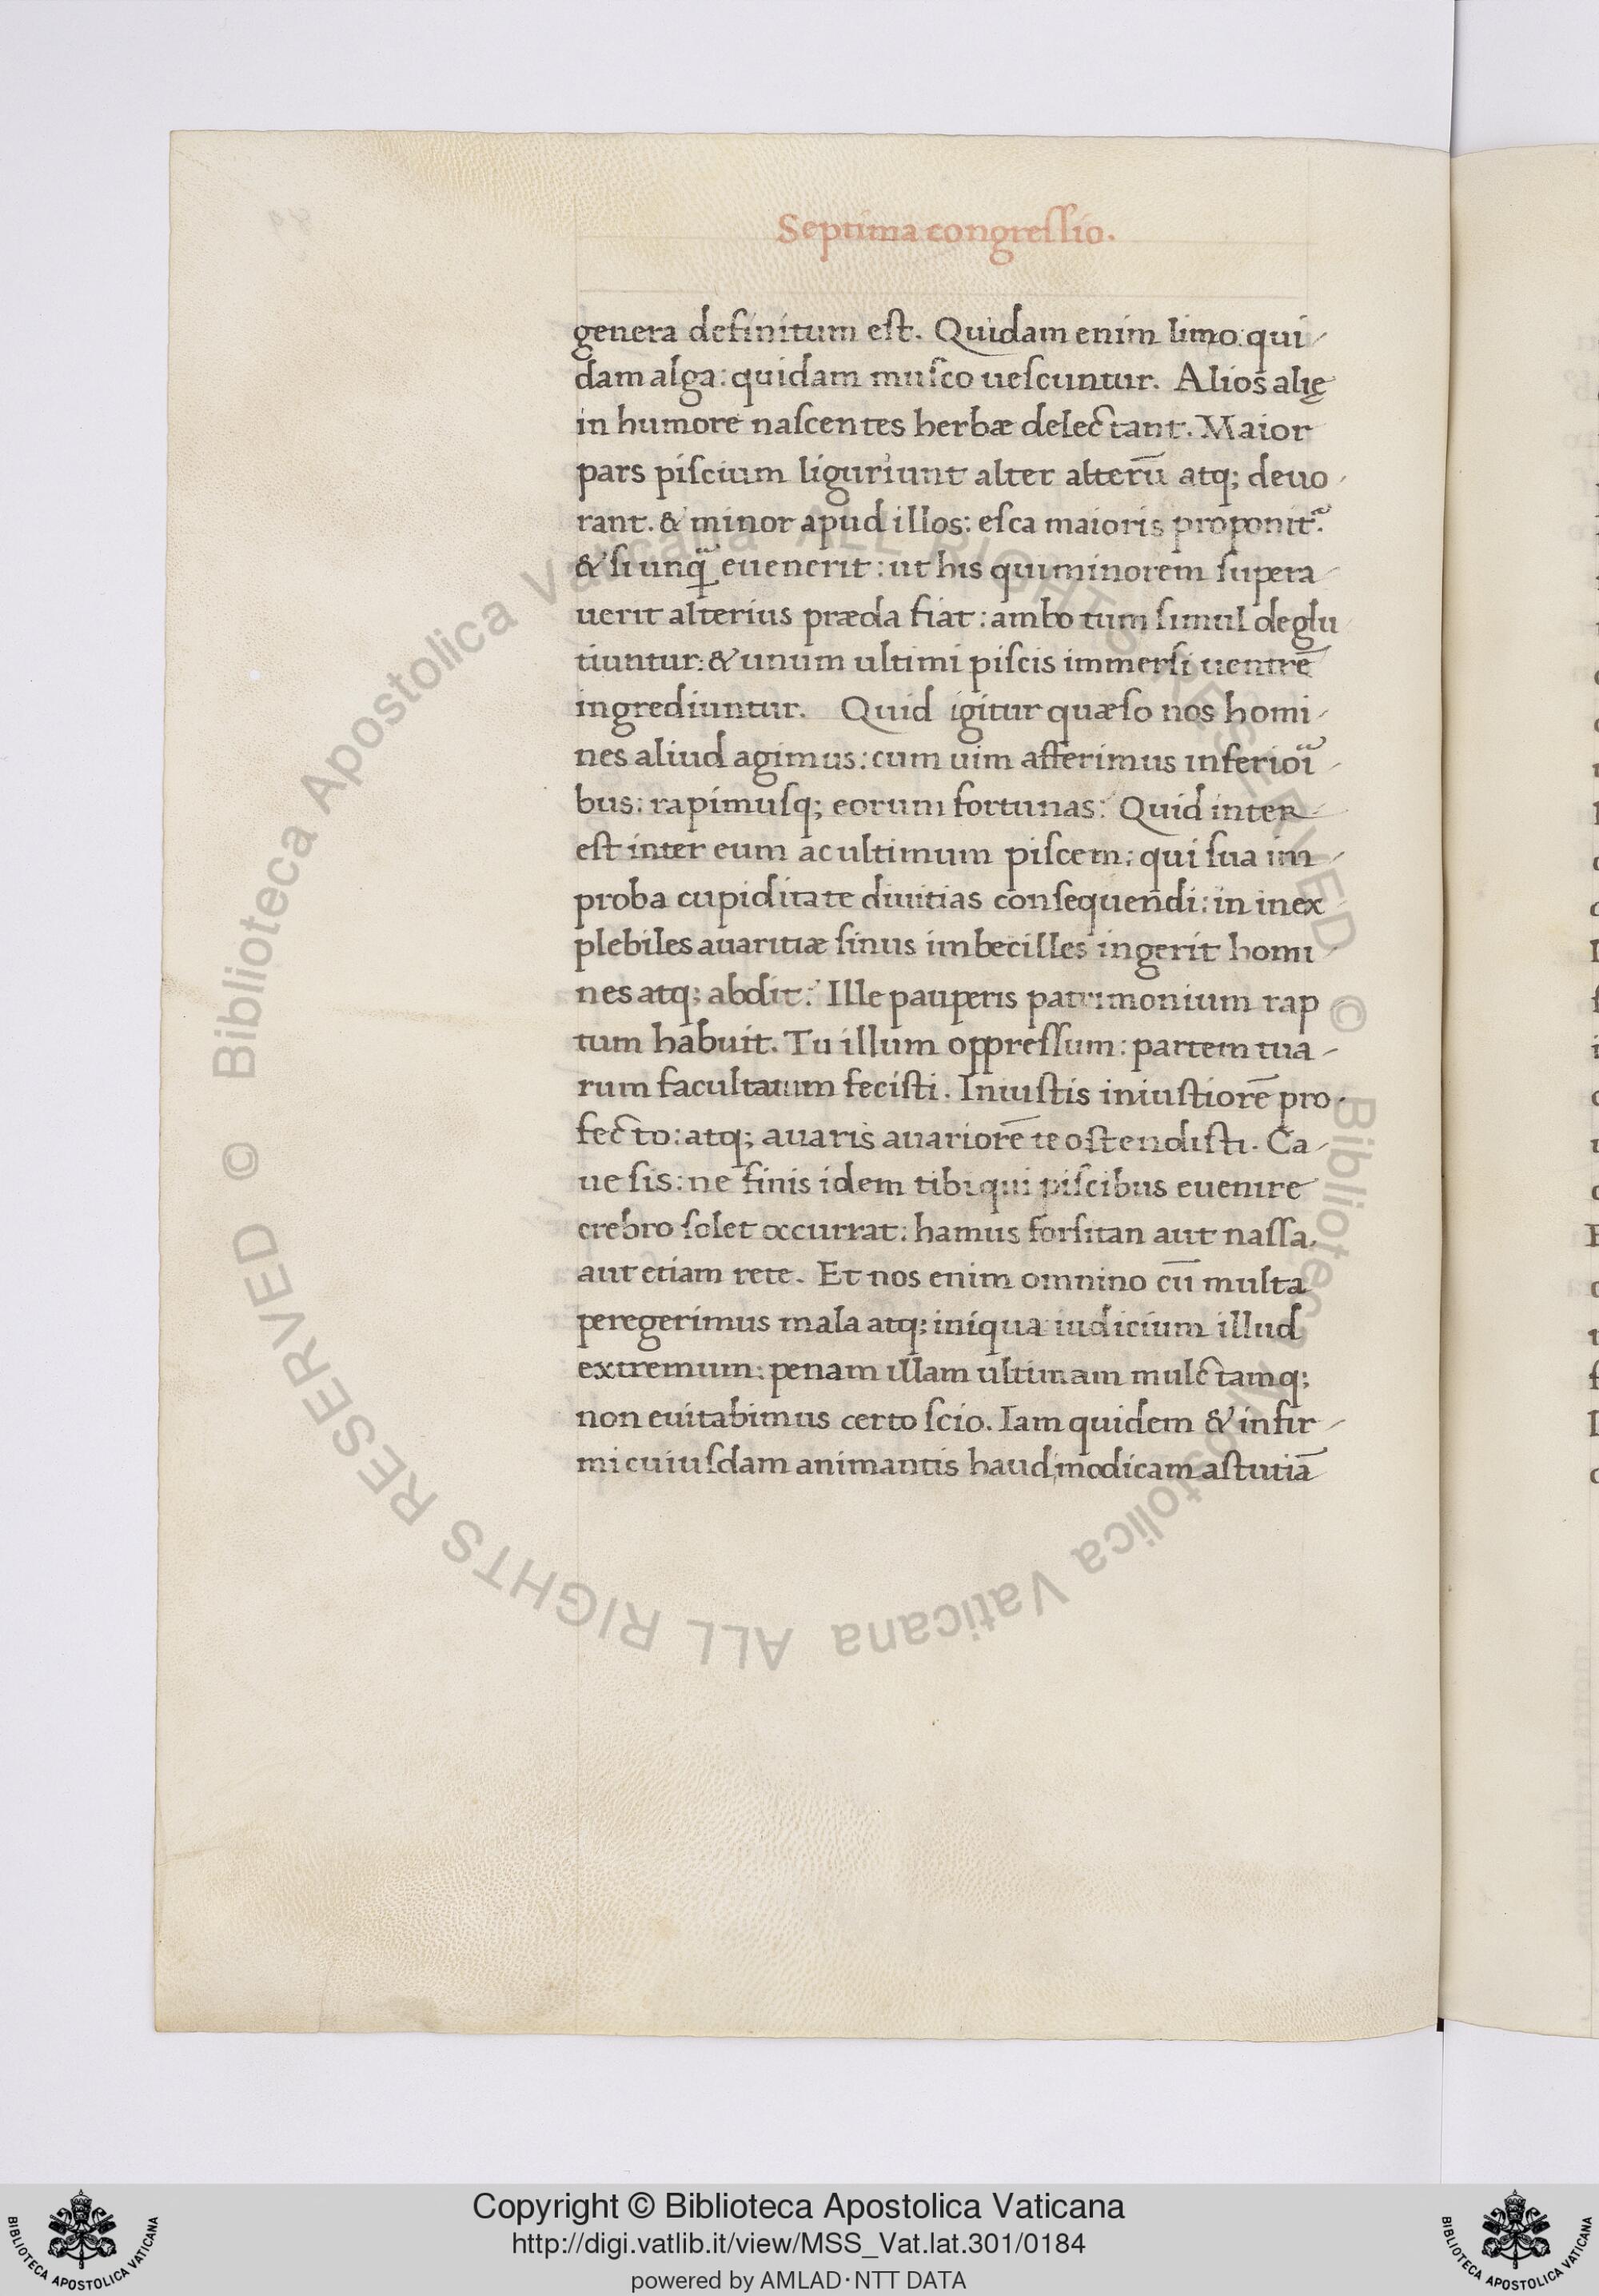 Septima congreſſio.
genera definitum eſt. Quidam enim limo: qui-
dam alga: quidam muſco ueſcuntur. Alios alię
in humore naſcentes herbæ delectant. Maior
pars piſcium liguriunt alter alterū atq; deuo-
rant. & minor apud illos: eſca maioris proponit᷑.
& ſi unq̃ euenerit: ut his qui minorem ſupera-
uerit alterius præda fiat: ambo tum ſimul deglu
tiuntur: & unum ultimi piſcis immerſi uentrē
ingrediuntur. Quid igitur quæſo nos homi-
nes aliud agimus: cum uim afferimus inferioıᷓ-
bus: rapimuſq; eorum fortunas: Quid inter-
eſt inter eum ac ultimum piſcem: qui ſua im-
proba cupiditate diuitias conſequendi: in inex
plebiles auaritiæ ſinus imbecilles ingerit homi-
nes atq; abdit: Ille pauperis patrimonium rap
tum habuit. Tu illum oppreſſum: partem tua-
rum facultatum feciſti. Iniuſtis iniuſtiorē pro-
fecto: atq; auaris auariorē te oſtendiſti. Ca-
ue ſis: ne finis idem tibi qui piſcibus euenire
crebro ſolet occurrat: hamus forſitan aut naſſa.
aut etiam rete. Et nos enim omnino cū multa
peregerimus mala atq; iniqua iudicium illud
extremum: penam illam ultimam mulctamq;
non euitabimus certo ſcio. Iam quidem & infir-
mi cuiuſdam animantis haud modicam aſtutiā
© Biblioteca Apostolica Vaticana ALL RIGHTS RESERVED
© Biblioteca Apostolica Vaticana ALL RIGHTS RESERVED
Copyright © Biblioteca Apostolica Vaticana
http://digi.vatlib.it/view/MSS_Vat.lat.301/0184
powered by AMLAD·NTT DATA
BIBLIOTECA APOSTOLICA VATICANA
BIBLIOTECA APOSTOLICA VATICANA